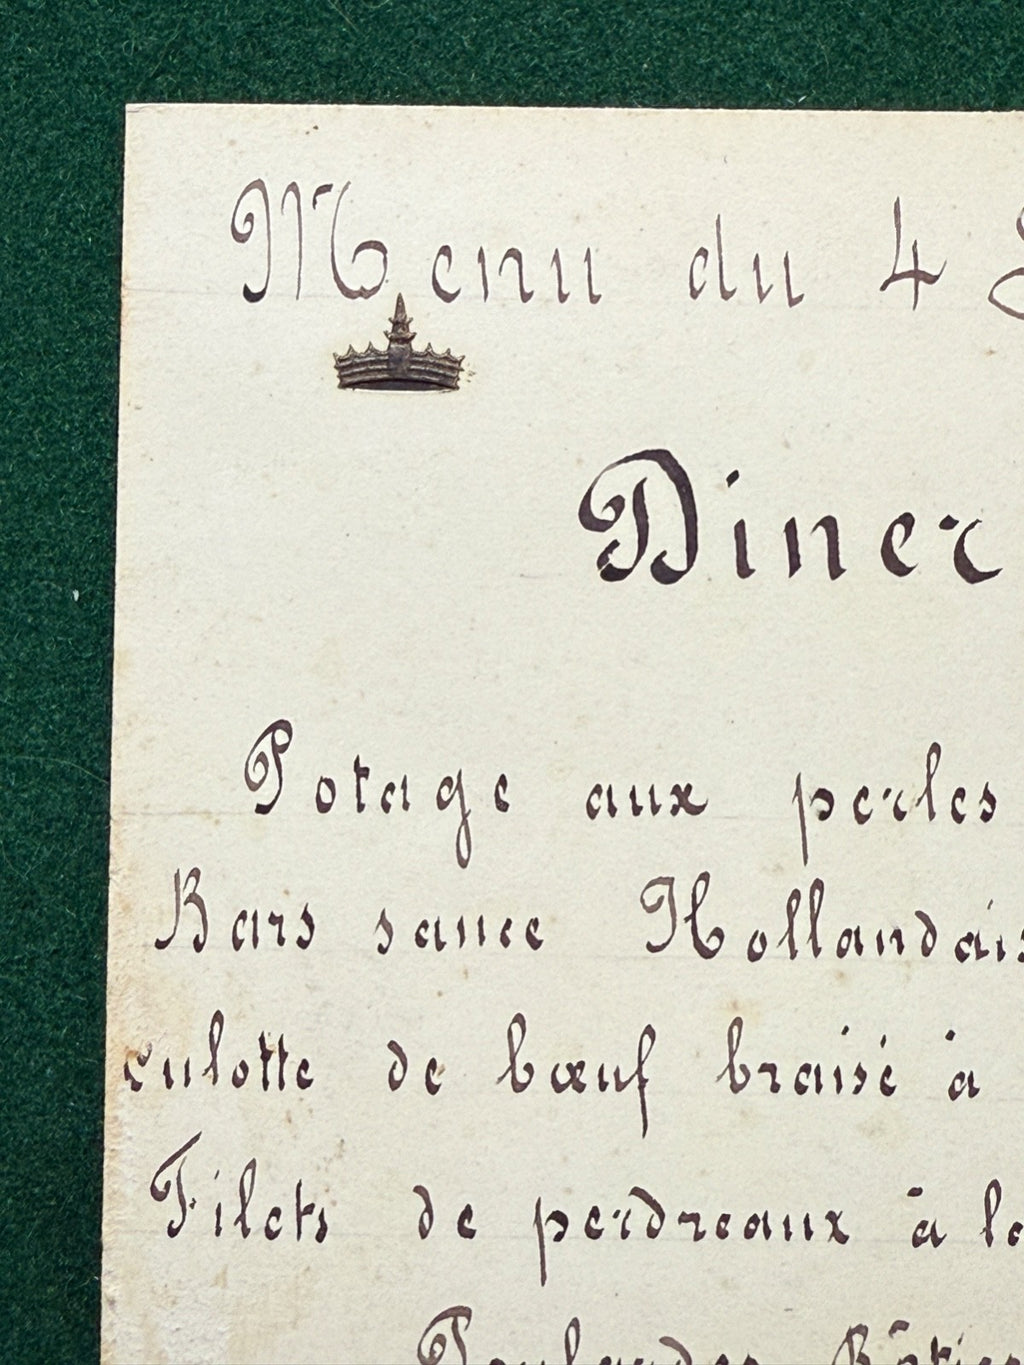 Menu du 4
Diner
Potage aux perles
Bars sauce Hollandais
culotte de bœuf braisé à
Filets de perdreaux à la
Poulardes Rôties